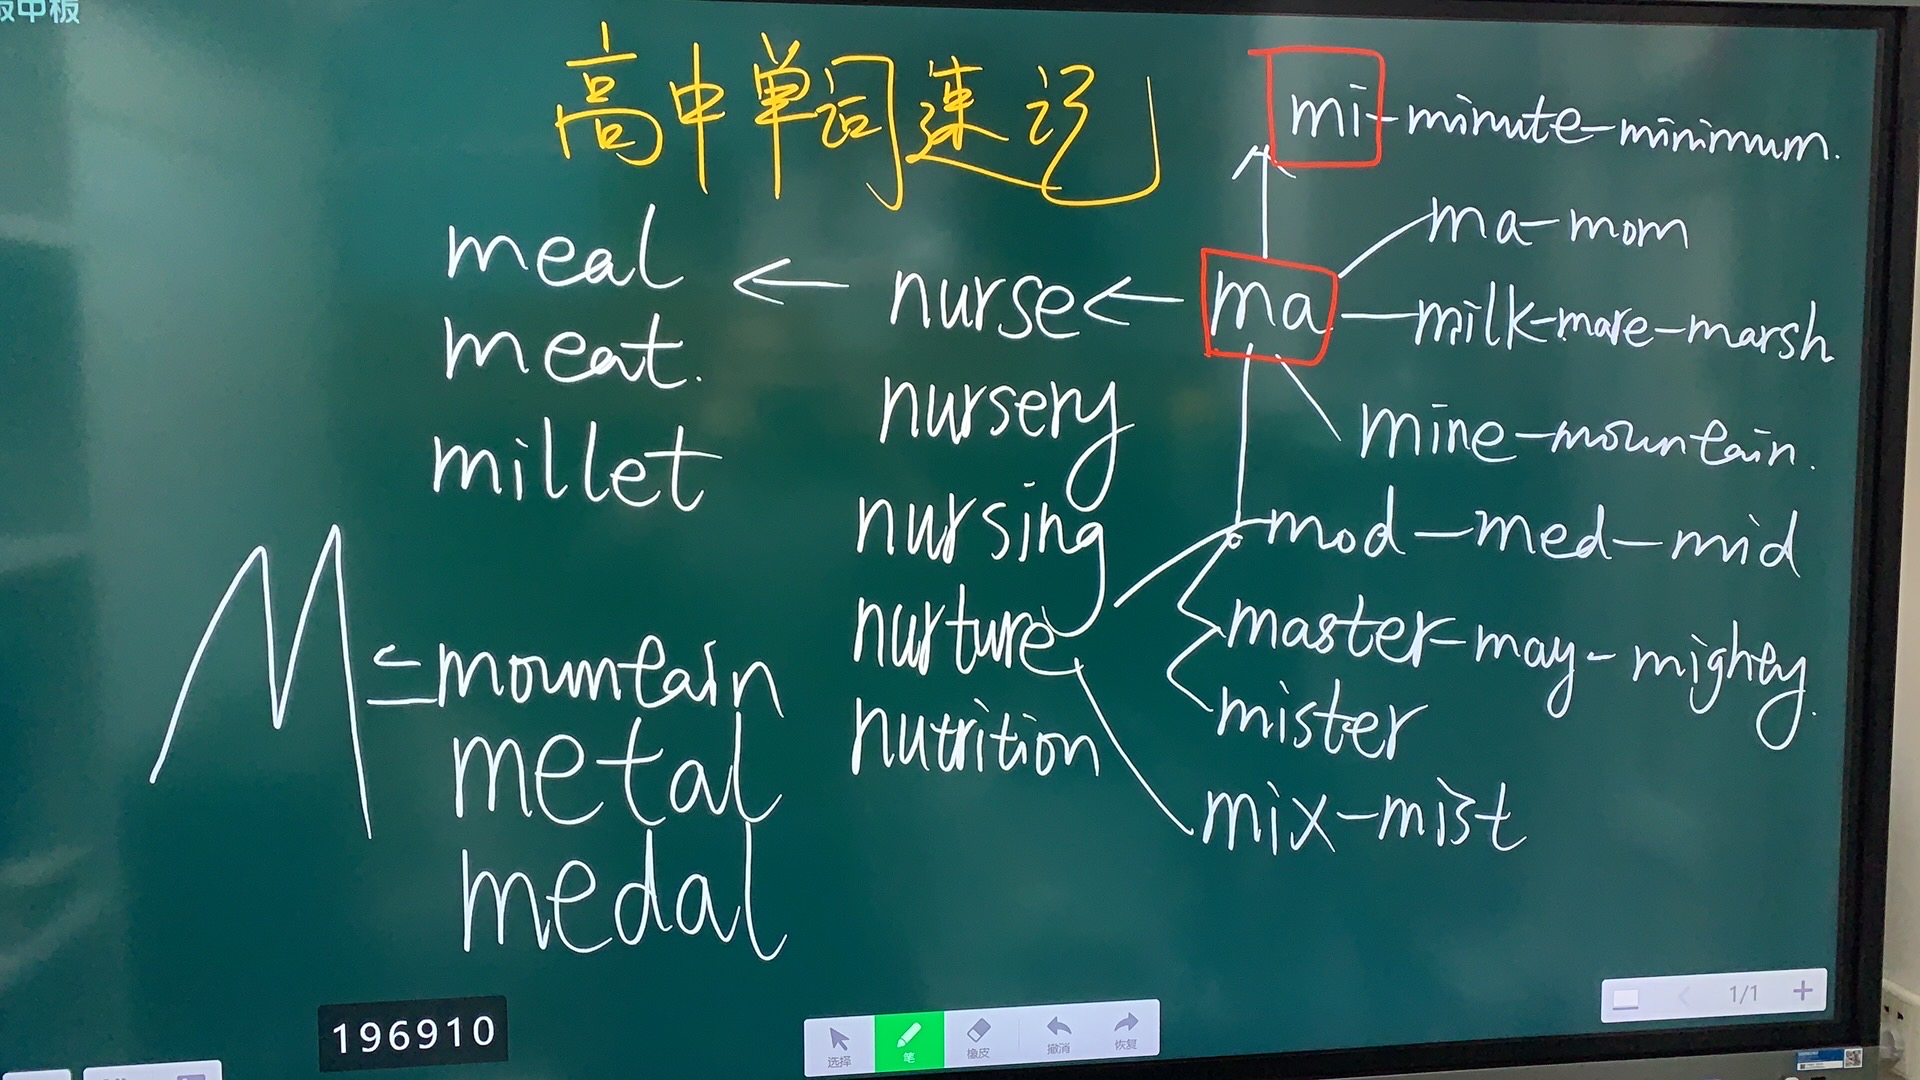 板中板
高中单词速记
mi-minute-minimum.
ma-mom
meal ← nurse ← ma -milk-mare-marsh
meat.
nursery
mine-mountain.
millet
nursing
mod-med-mid
nurture
master-may-mighty.
M =mountain
mister
nutrition
metal
mix-mist
medal
1/1
196910
选择
笔
橡皮
撤消
恢复